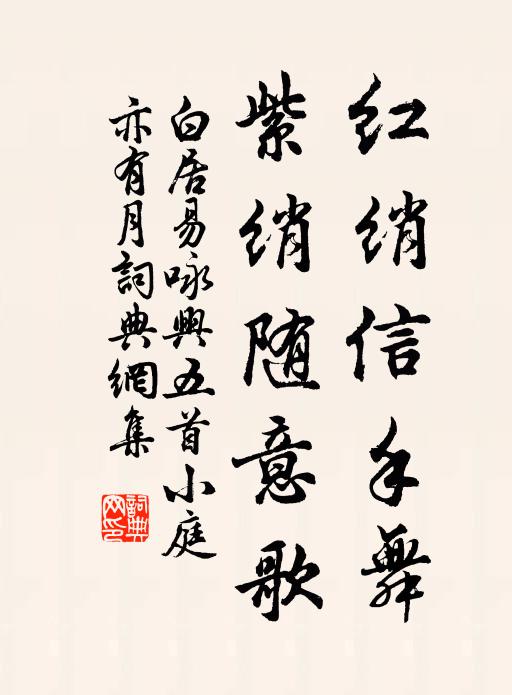 红绡信手舞
紫绡随意歌
白居易咏興五首小庭
亦有月詞典網集
詞典
网印